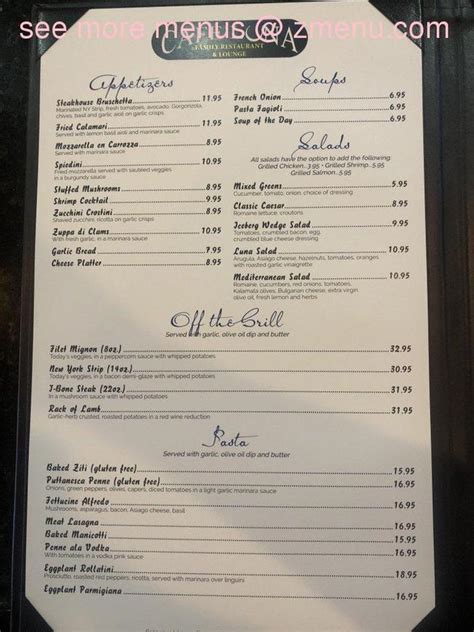 see more menus @ zmenu.com
FAMILY RESTAURANT
& LOUNGE
Appetizers
Steakhouse Bruschetta 11.95
Marinated NY Strip, fresh tomatoes, avocado, Gorgonzola,
chives, basil and garlic aioli on garlic crisps
Fried Calamari 11.95
Served with lemon basil aioli and marinara sauce
Mozzarella en Carrozza 8.95
Served with marinara sauce
Spiedini 10.95
Fried mozzarella served with sautéed veggies
in a burgundy sauce
Stuffed Mushrooms 8.95
Shrimp Cocktail 9.95
Zucchini Crostini 8.95
Shaved zucchini, ricotta on garlic crisps
Zuppa di Clams 10.95
With fresh garlic, in a marinara sauce
Garlic Bread 7.95
Cheese Platter 8.95
Soups
French Onion 6.95
Pasta Fagioli 6.95
Soup of the Day 6.95
Salads
All salads have the option to add the following
Grilled Chicken...3.95 • Grilled Shrimp...5.95
Grilled Salmon...5.95
Mixed Greens 5.95
Cucumber, tomato, onion, choice of dressing
Classic Caesar 8.95
Romaine lettuce, croutons
Iceberg Wedge Salad 9.95
Tomatoes, crumbled bacon, egg,
crumbled blue cheese dressing
Luna Salad 10.95
Arugula, Asiago cheese, hazelnuts, tomatoes, oranges
with roasted garlic vinaigrette
Mediterranean Salad 10.95
Romaine, cucumbers, red onions, tomatoes,
Kalamata olives, Bulgarian cheese, extra virgin
olive oil, fresh lemon and herbs
Off the Grill
Served with garlic, olive oil dip and butter
Filet Mignon (8oz.) 32.95
Today's veggies, in a peppercorn sauce with whipped potatoes
New York Strip (14oz) 30.95
Today's veggies, in a bacon demi-glaze with whipped potatoes
T-Bone Steak (22oz) 31.95
In a mushroom sauce with whipped potatoes
Rack of Lamb 31.95
Garlic-herb crusted, roasted potatoes in a red wine reduction
Pasta
Served with garlic, olive oil dip and butter
Baked Ziti (gluten free) 15.95
Puttanesca Penne (gluten free) 16.95
Onions, green peppers, olives, capers, diced tomatoes in a light garlic marinara sauce
Fettucine Alfredo 16.95
Mushrooms, asparagus, bacon, Asiago cheese, basil
Meat Lasagna 16.95
Baked Manicotti 15.95
Penne ala Vodka 16.95
With tomatoes in a vodka pink sauce
Eggplant Rollatini 18.95
Prosciutto, roasted red peppers, ricotta, served with marinara over linguini
Eggplant Parmigiana 16.95